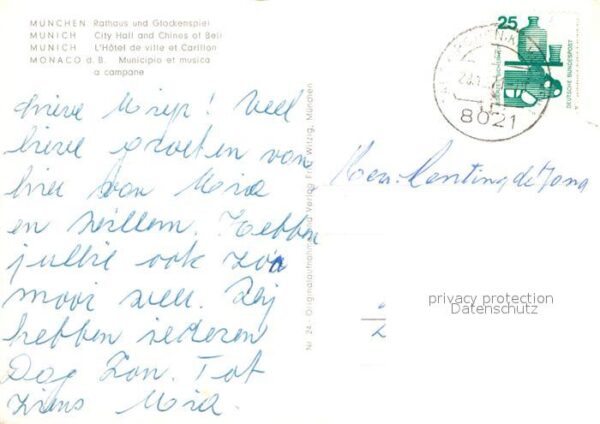 MÜNCHEN Rathaus und Glockenspiel
MUNICH City Hall and Chines of Bell
MUNICH L'Hôtel de ville et Carillon
MONACO d. B. Municipio et musica
a campane
Lieve Miep! Veel
lieve groeten van
hier van Mia
en Willem. Hebben
jullie ook zo'n
mooi weer. Wij
hebben iederen
Dag Zon. Tot
Ziens Mia.
Nr. 24 - Originalaufnahme und Verlag Witzig, München
25
DEUTSCHE BUNDESPOST
8021
de Jong
privacy protection
Datenschutz